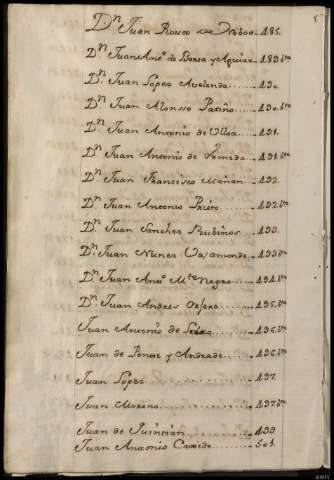 Dn Juan Rouco de Obdon 485.
Dn Juan Anto de Boxea y Aguiar 489 vta
Dn Juan Lopez Avelenda 490
Dn Juan Alonso Patiño 490. vta
Dn Juan Antonio de Ulloa 491.
Dn Juan Antonio de Hermida 491. vta
Dn Juan Francisco Mañan 492
Dn Juan Antonio Prieto 492 vta
Dn Juan Sanchez Rubiños 493.
Dn Juan Nuñez Vasamonde 493 vta
Dn Juan Anto Mte Negro 494 vta
Dn Juan Andres 495. vta
Juan Antonio de 496. vta
Juan de Ponte y Andrade 496. vta
Juan Lopez 497.
Juan Moreno 497. vta
Juan de Quintian 499
Juan Antonio 501.